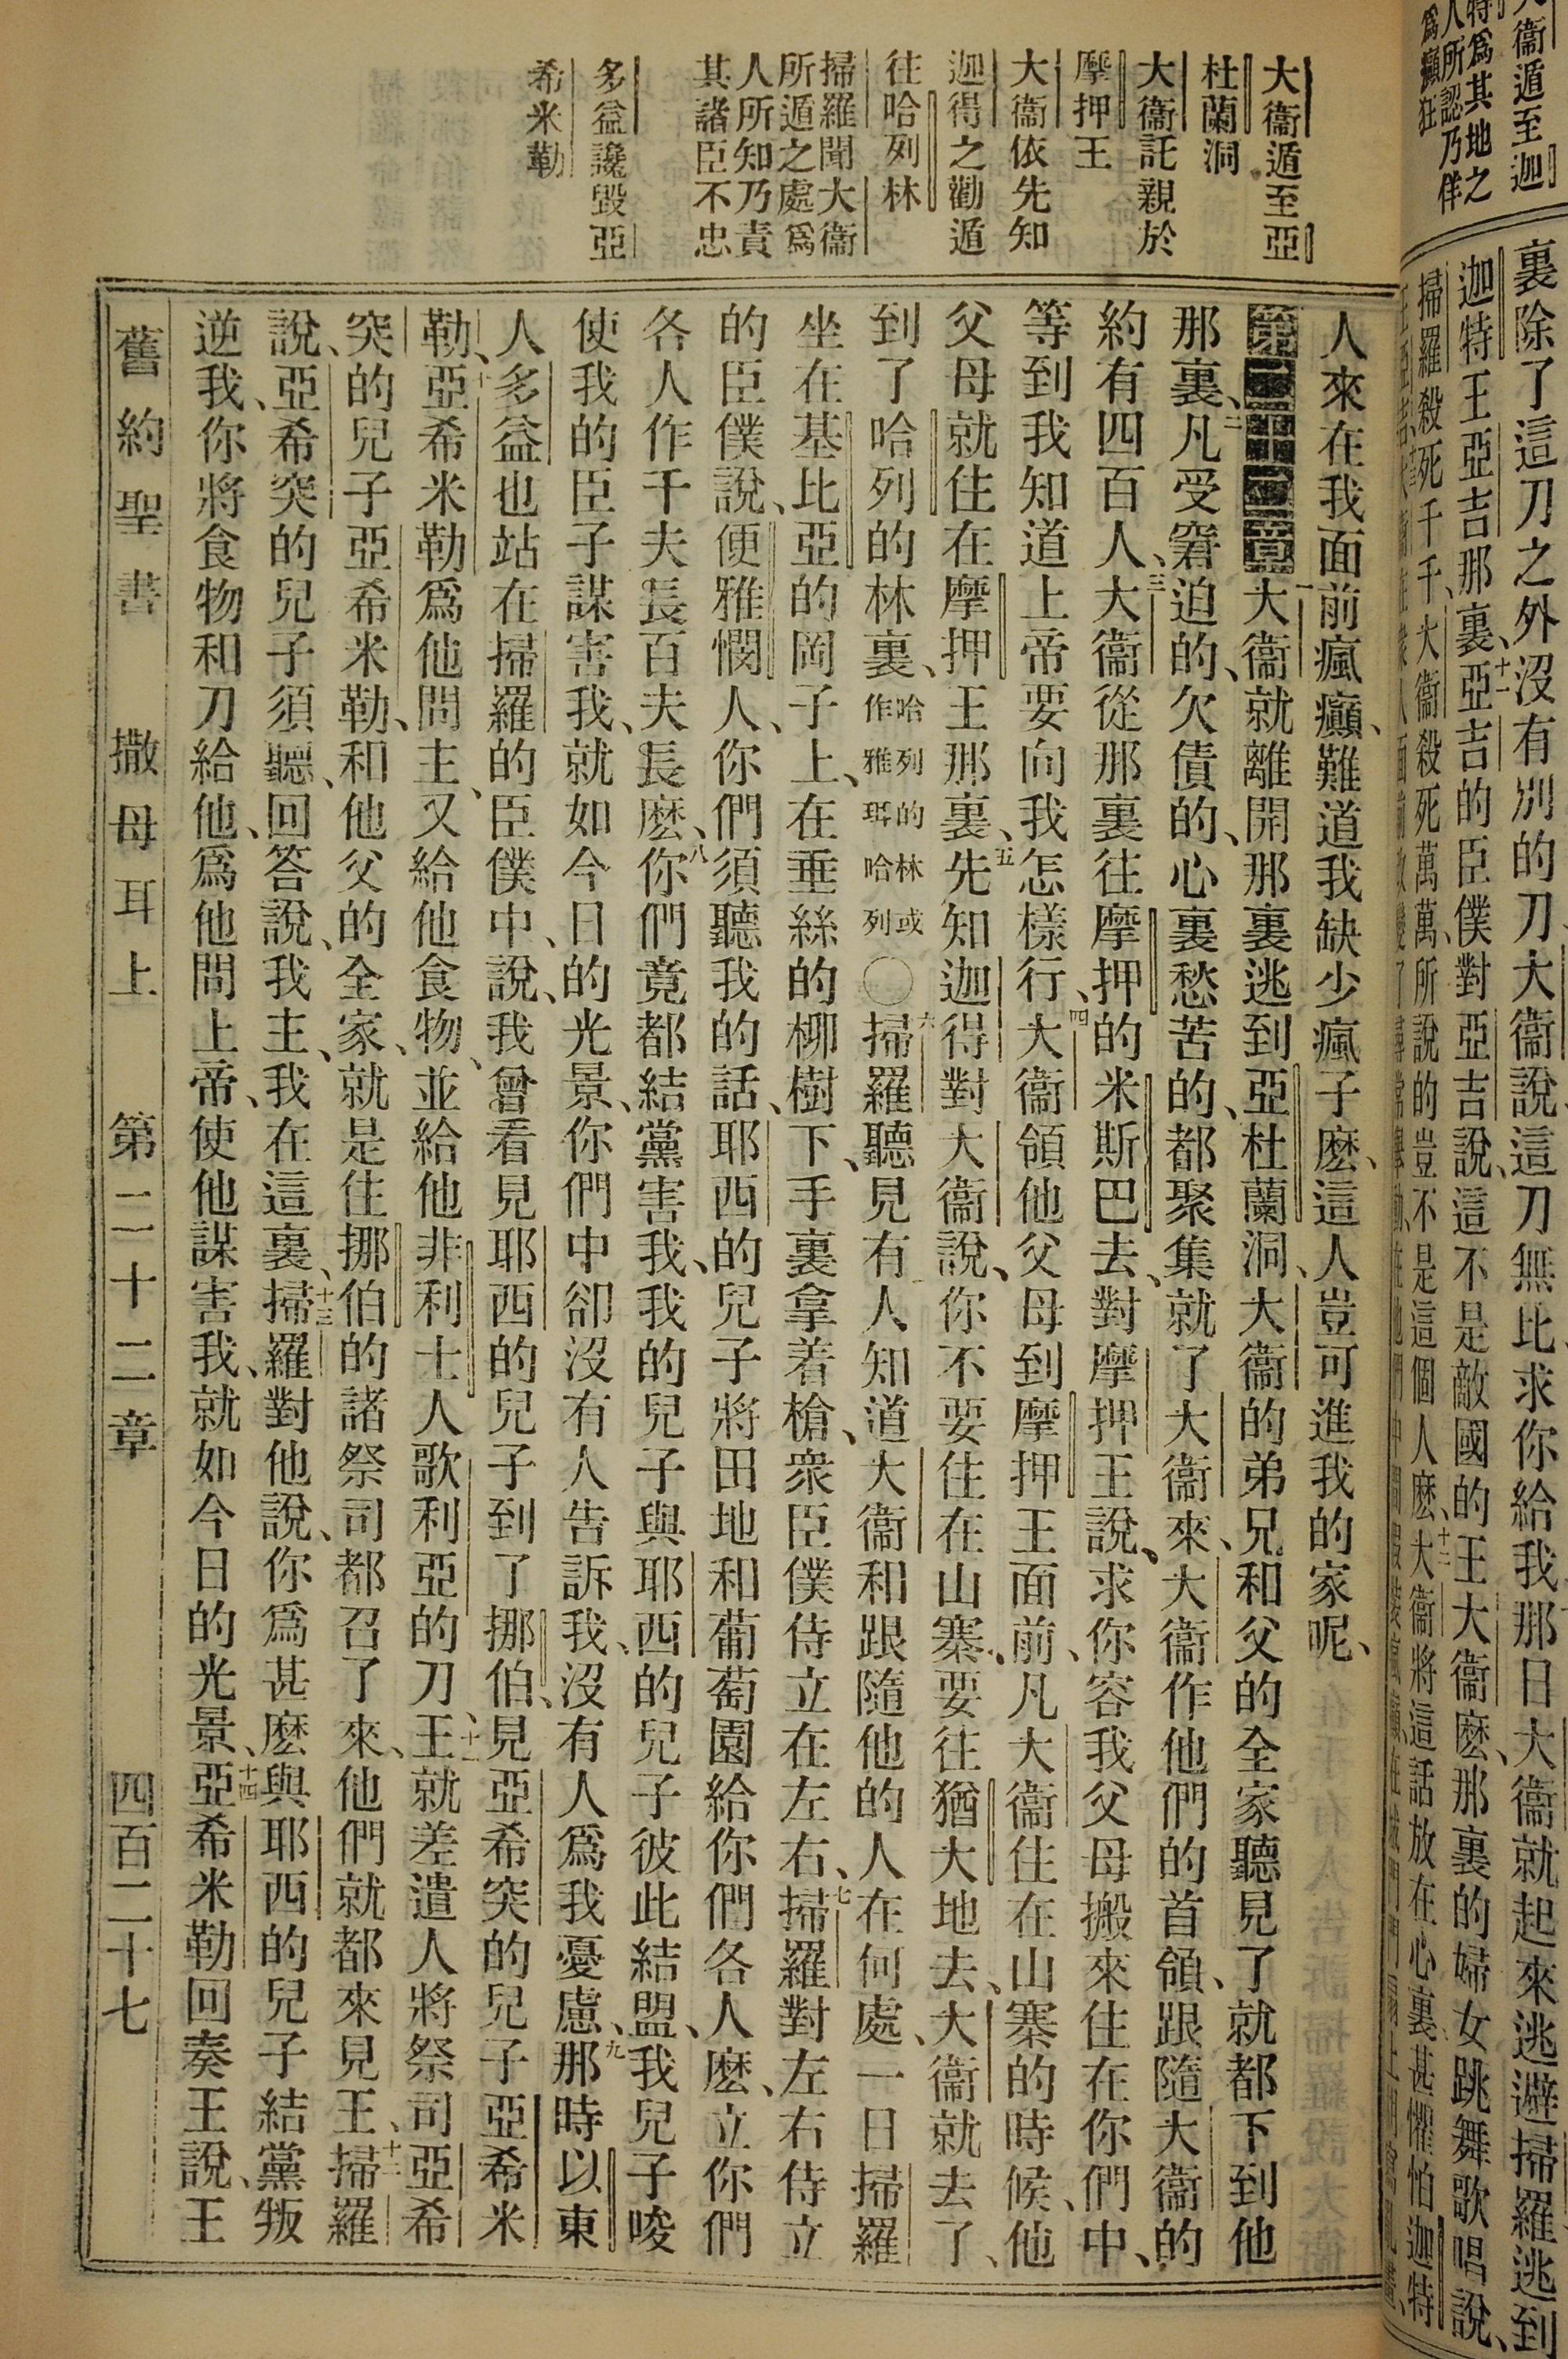 大衞遁至迦
特爲其地之
人所認乃佯
爲癲狂
裏除了這刀之外沒有別的刀、大衞說、這刀無比、求你給我、那日大衞就起來逃避掃羅逃到
迦特王亞吉那裏、十一亞吉的臣僕對亞吉說、這不是敵國的王大衞麽、那裏的婦女跳舞歌唱說、
掃羅殺死千千、大衞殺死萬萬、所說的豈不是這個人麽、十二大衞將這話放在心裏甚懼怕迦特
大衞遁至亞
杜蘭洞
大衞託親於
摩押王
大衞依先知
迦得之勸遁
往哈列林
掃羅聞大衞
所遁之處爲
人所知乃責
其諸臣不忠
多益讒毀亞
希米勒
人來在我面前瘋癲、難道我缺少瘋子麽、這人豈可進我的家呢、
第二十二章 一大衞就離開那裏逃到亞杜蘭洞、大衞的弟兄和父的全家聽見了就都下到他
那裏、二凡受窘迫的、欠債的、心裏愁苦的、都聚集就了大衞來、大衞作他們的首領、跟隨大衞的
約有四百人、三大衞從那裏往摩押的米斯巴去、對摩押王說、求你容我父母搬來住在你們中、
等到我知道上帝要向我怎樣行、四大衞領他父母到摩押王面前、凡大衞住在山寨的時候、他
父母就住在摩押王那裏、五先知迦得對大衞說、你不要住在山寨、要往猶大地去、大衞就去了、
到了哈列的林裏、哈列的林或作雅珥哈列〇六掃羅聽見有人知道大衞和跟隨他的人在何處、一日掃羅
坐在基比亞的岡子上、在垂絲的柳樹下、手裏拿着槍、衆臣僕侍立在左右、七掃羅對左右侍立
的臣僕說、便雅憫人、你們須聽我的話、耶西的兒子將田地和葡萄園給你們各人麽、立你們
各人作千夫長百夫長麽、八你們竟都結黨害我、我的兒子與耶西的兒子彼此結盟、我兒子唆
使我的臣子謀害我、就如今日的光景、你們中卻沒有人告訴我、沒有人爲我憂慮、九那時以東
人多益也站在掃羅的臣僕中、說、我曾看見耶西的兒子到了挪伯、見亞希突的兒子亞希米
勒、十亞希米勒爲他問主、又給他食物、並給他非利士人歌利亞的刀、十一王就差遣人將祭司亞希
突的兒子亞希米勒、和他父的全家、就是住挪伯的諸祭司都召了來、他們就都來見王、十二掃羅
說、亞希突的兒子須聽、回答說、我主、我在這裏、十三掃羅對他說、你爲甚麽與耶西的兒子結黨叛
逆我、你將食物和刀給他、爲他問上帝、使他謀害我、就如今日的光景、十四亞希米勒回奏王說、王
舊約聖書 撒母耳上 第二十二章 四百二十七